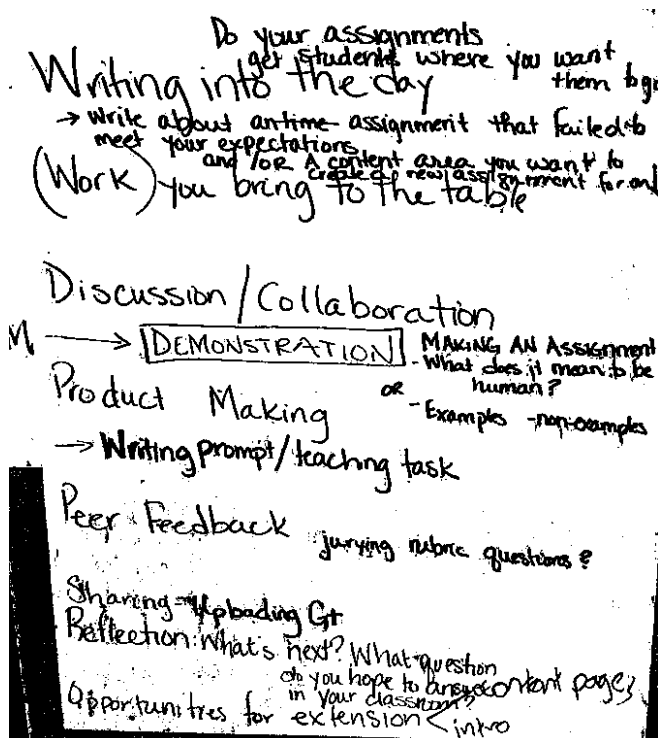 Do your assignments
get students where you want
them to g
Writing into the day
→ Write about an time assignment that failed to
meet your expectations
and /OR A content area you want to
create a new assignment for and
(Work) you bring to the table
Discussion/Collaboration
→ DEMONSTRATION
MAKING AN ASSIGNMENT
- What does it mean to be
human?
OR
- Examples - non-examples
Product Making
→ Writing prompt/teaching task
Peer Feedback
jurying rubric questions?
Sharing - Uploading G+
Reflection: What's next? What question
do you hope to
in your classroom?
content page
Opportunities for extension < intro